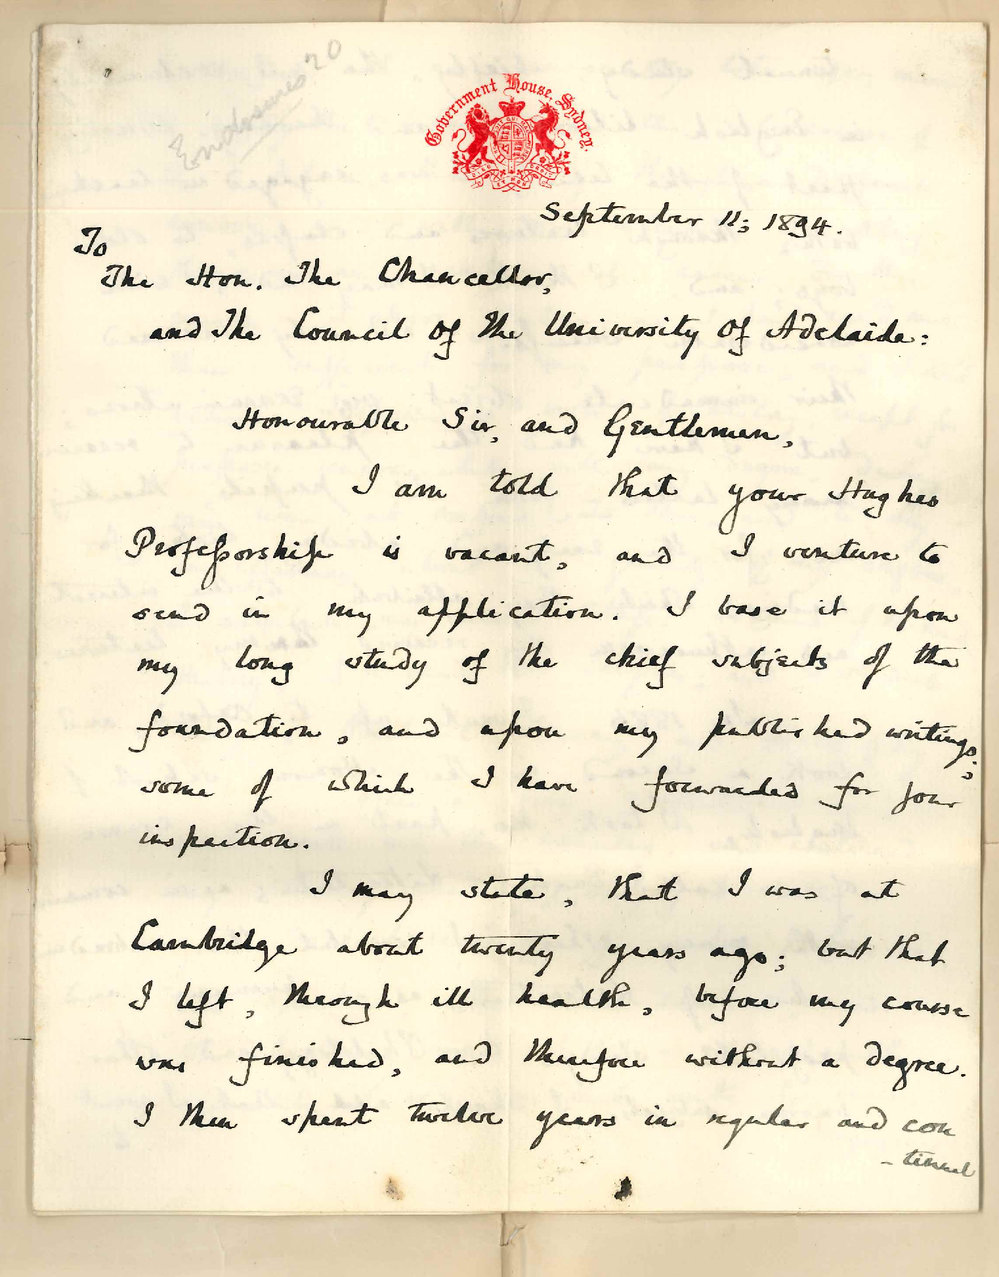 Enclosures 20
Government House, Sydney.
September 11; 1894.
To
The Hon. The Chancellor,
and The Council of The University of Adelaide:
Honourable Sir, and Gentlemen,
I am told that your Hughes
Professorship is vacant, and I venture to
send in my application. I base it upon
my long study of the chief subjects of the
foundation, and upon my published writings;
some of which I have forwarded for your
inspection.
I may state, that I was at
Cambridge about twenty years ago; but that
I left, through ill health, before my course
was finished, and therefore without a degree.
I then spent twelve years in regular and con
-tinual